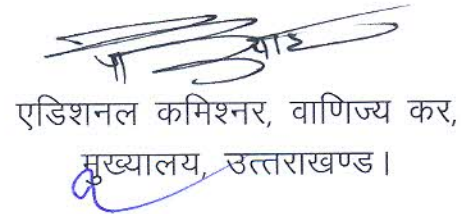 एडिशनल कमिश्नर, वाणिज्य कर,
मुख्यालय, उत्तराखण्ड।